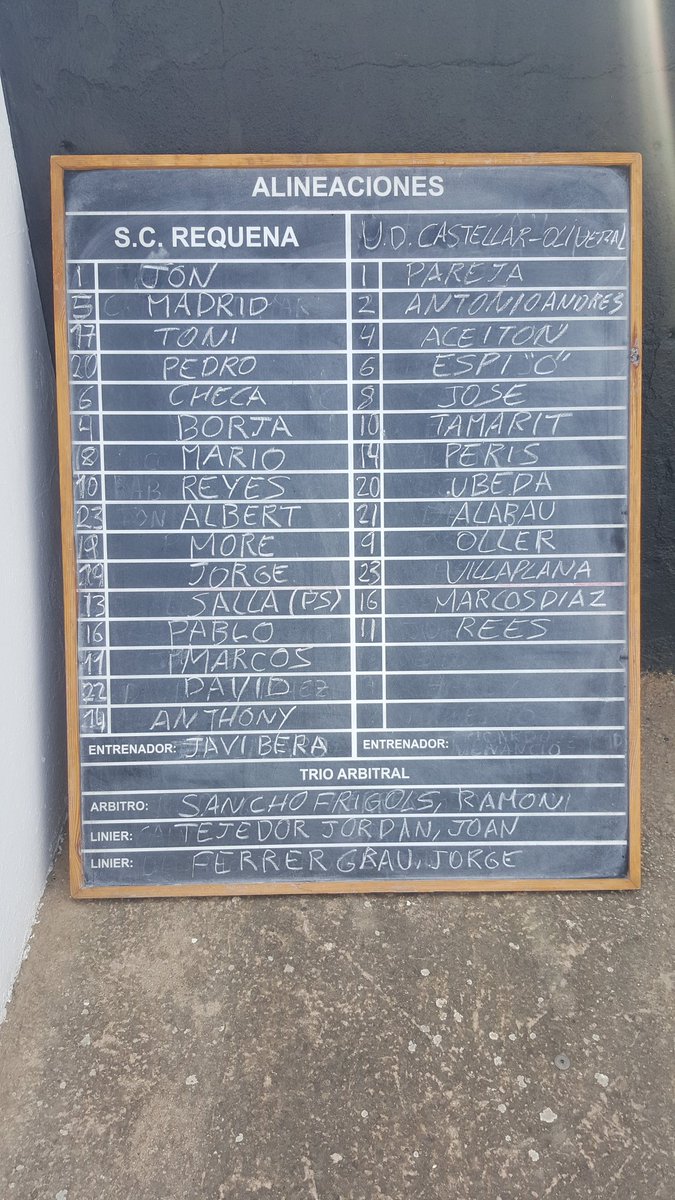 ALINEACIONES
S.C. REQUENA U.D. CASTELLAR-OLIVERAL
1 JON 1 PAREJA
5 MADRID 2 ANTONIO ANDRES
17 TONI 4 ACEITON
20 PEDRO 6 ESPI "O"
6 CHECA 8 JOSE
4 BORJA 10 TAMARIT
8 MARIO 14 PERIS
10 REYES 20 UBEDA
23 ALBERT 21 ALABAU
9 MORE 9 OLLER
19 JORGE 23 VILLAPLANA
13 SALLA (PS) 16 MARCOS DIAZ
16 PABLO 11 REES
11 MARCOS
22 DAVID
14 ANTHONY
ENTRENADOR: JAVI BERA ENTRENADOR:
TRIO ARBITRAL
ARBITRO: SANCHO FRIGOLS, RAMON
LINIER: TEJEDOR JORDAN, JOAN
LINIER: FERRER GRAU, JORGE